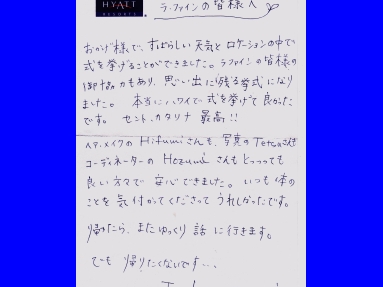 HYATT
RESORTS
ラ・ファインの皆様へ
おかげ様で、すばらしい天気とロケーションの中で
式を挙げることができました。ラファインの皆様の
御協力もあり、思い出に残る挙式になり
ました。 本当にハワイで式を挙げて良かった
です。 セントカタリナ 最高!!
ヘア、メイクの Hifumiさんも、写真の Tetsuさんも
コーディネーターの Hozumiさんもとっっっても
良い方々で 安心できました。いつも体の
ことを 気付かってくださって うれしかったです。
帰ったら、またゆっくり 話に行きます。
でも 帰りたくないです...